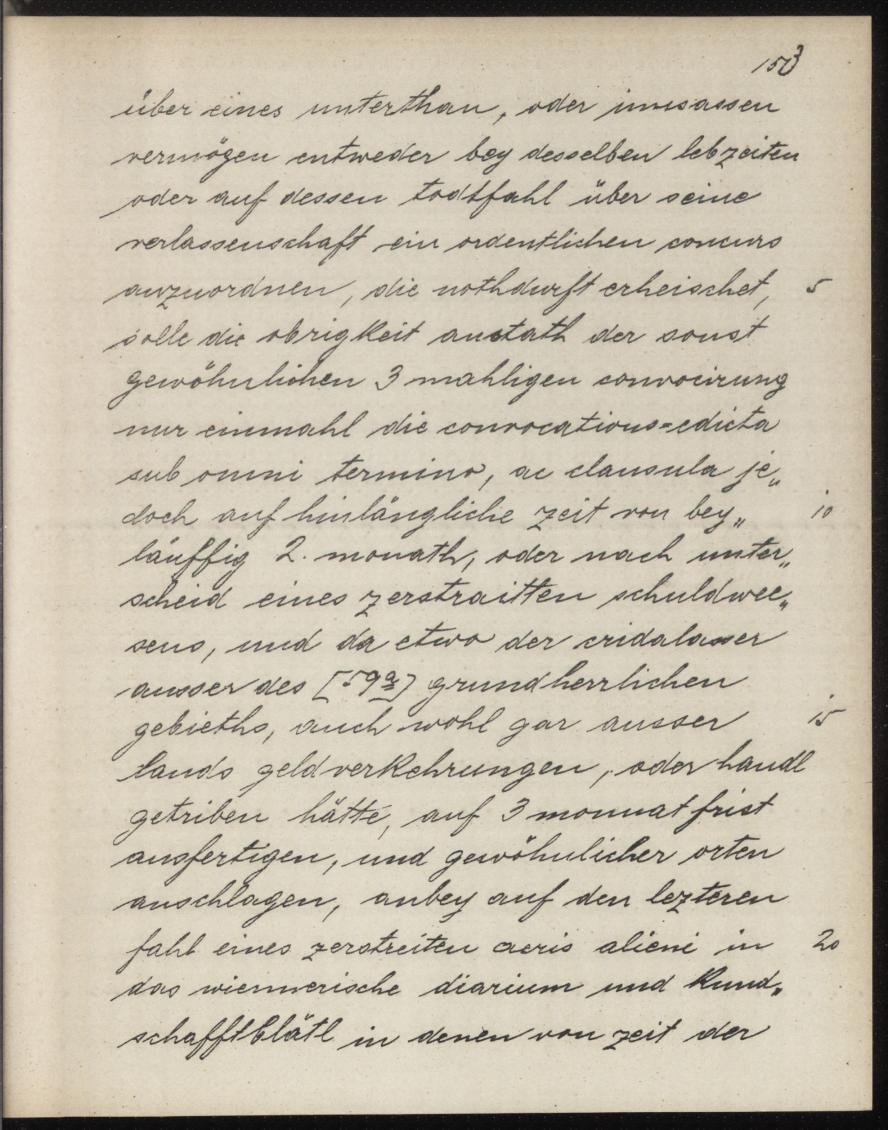 153
über eines unterthan, oder innsassen
vermögen entweder bey desselben lebzeiten
oder auf dessen todtfahl über seine
verlassenschaft ein ordentlichen concurs
anzuordnen, die nothdurft erheischet, 5
solle die obrigkeit anstath der sonst
gewöhnlichen 3 mahligen convocirung
nur einmahl die convocations=edicta
sub omni termino, ac clausula je„
doch auf hinlängliche zeit von bey„ 10
läuffig 2. monath, oder nach unter„
scheid eines zerstraitten schuldwee„
sens, und da etwo der cridalasser
ausser des [59a] grundherrlichen
gebieths, auch wohl gar ausser 15
lands geldverkehrungen, oder handl
getriben hätte, auf 3 monnat frist
ausfertigen, und gewöhnlicher orten
anschlagen, anbey auf den lezteren
fahl eines zerstreiten aeris alieni in 20
das wiennerische diarium und kund„
schafftblätl in denen von zeit der